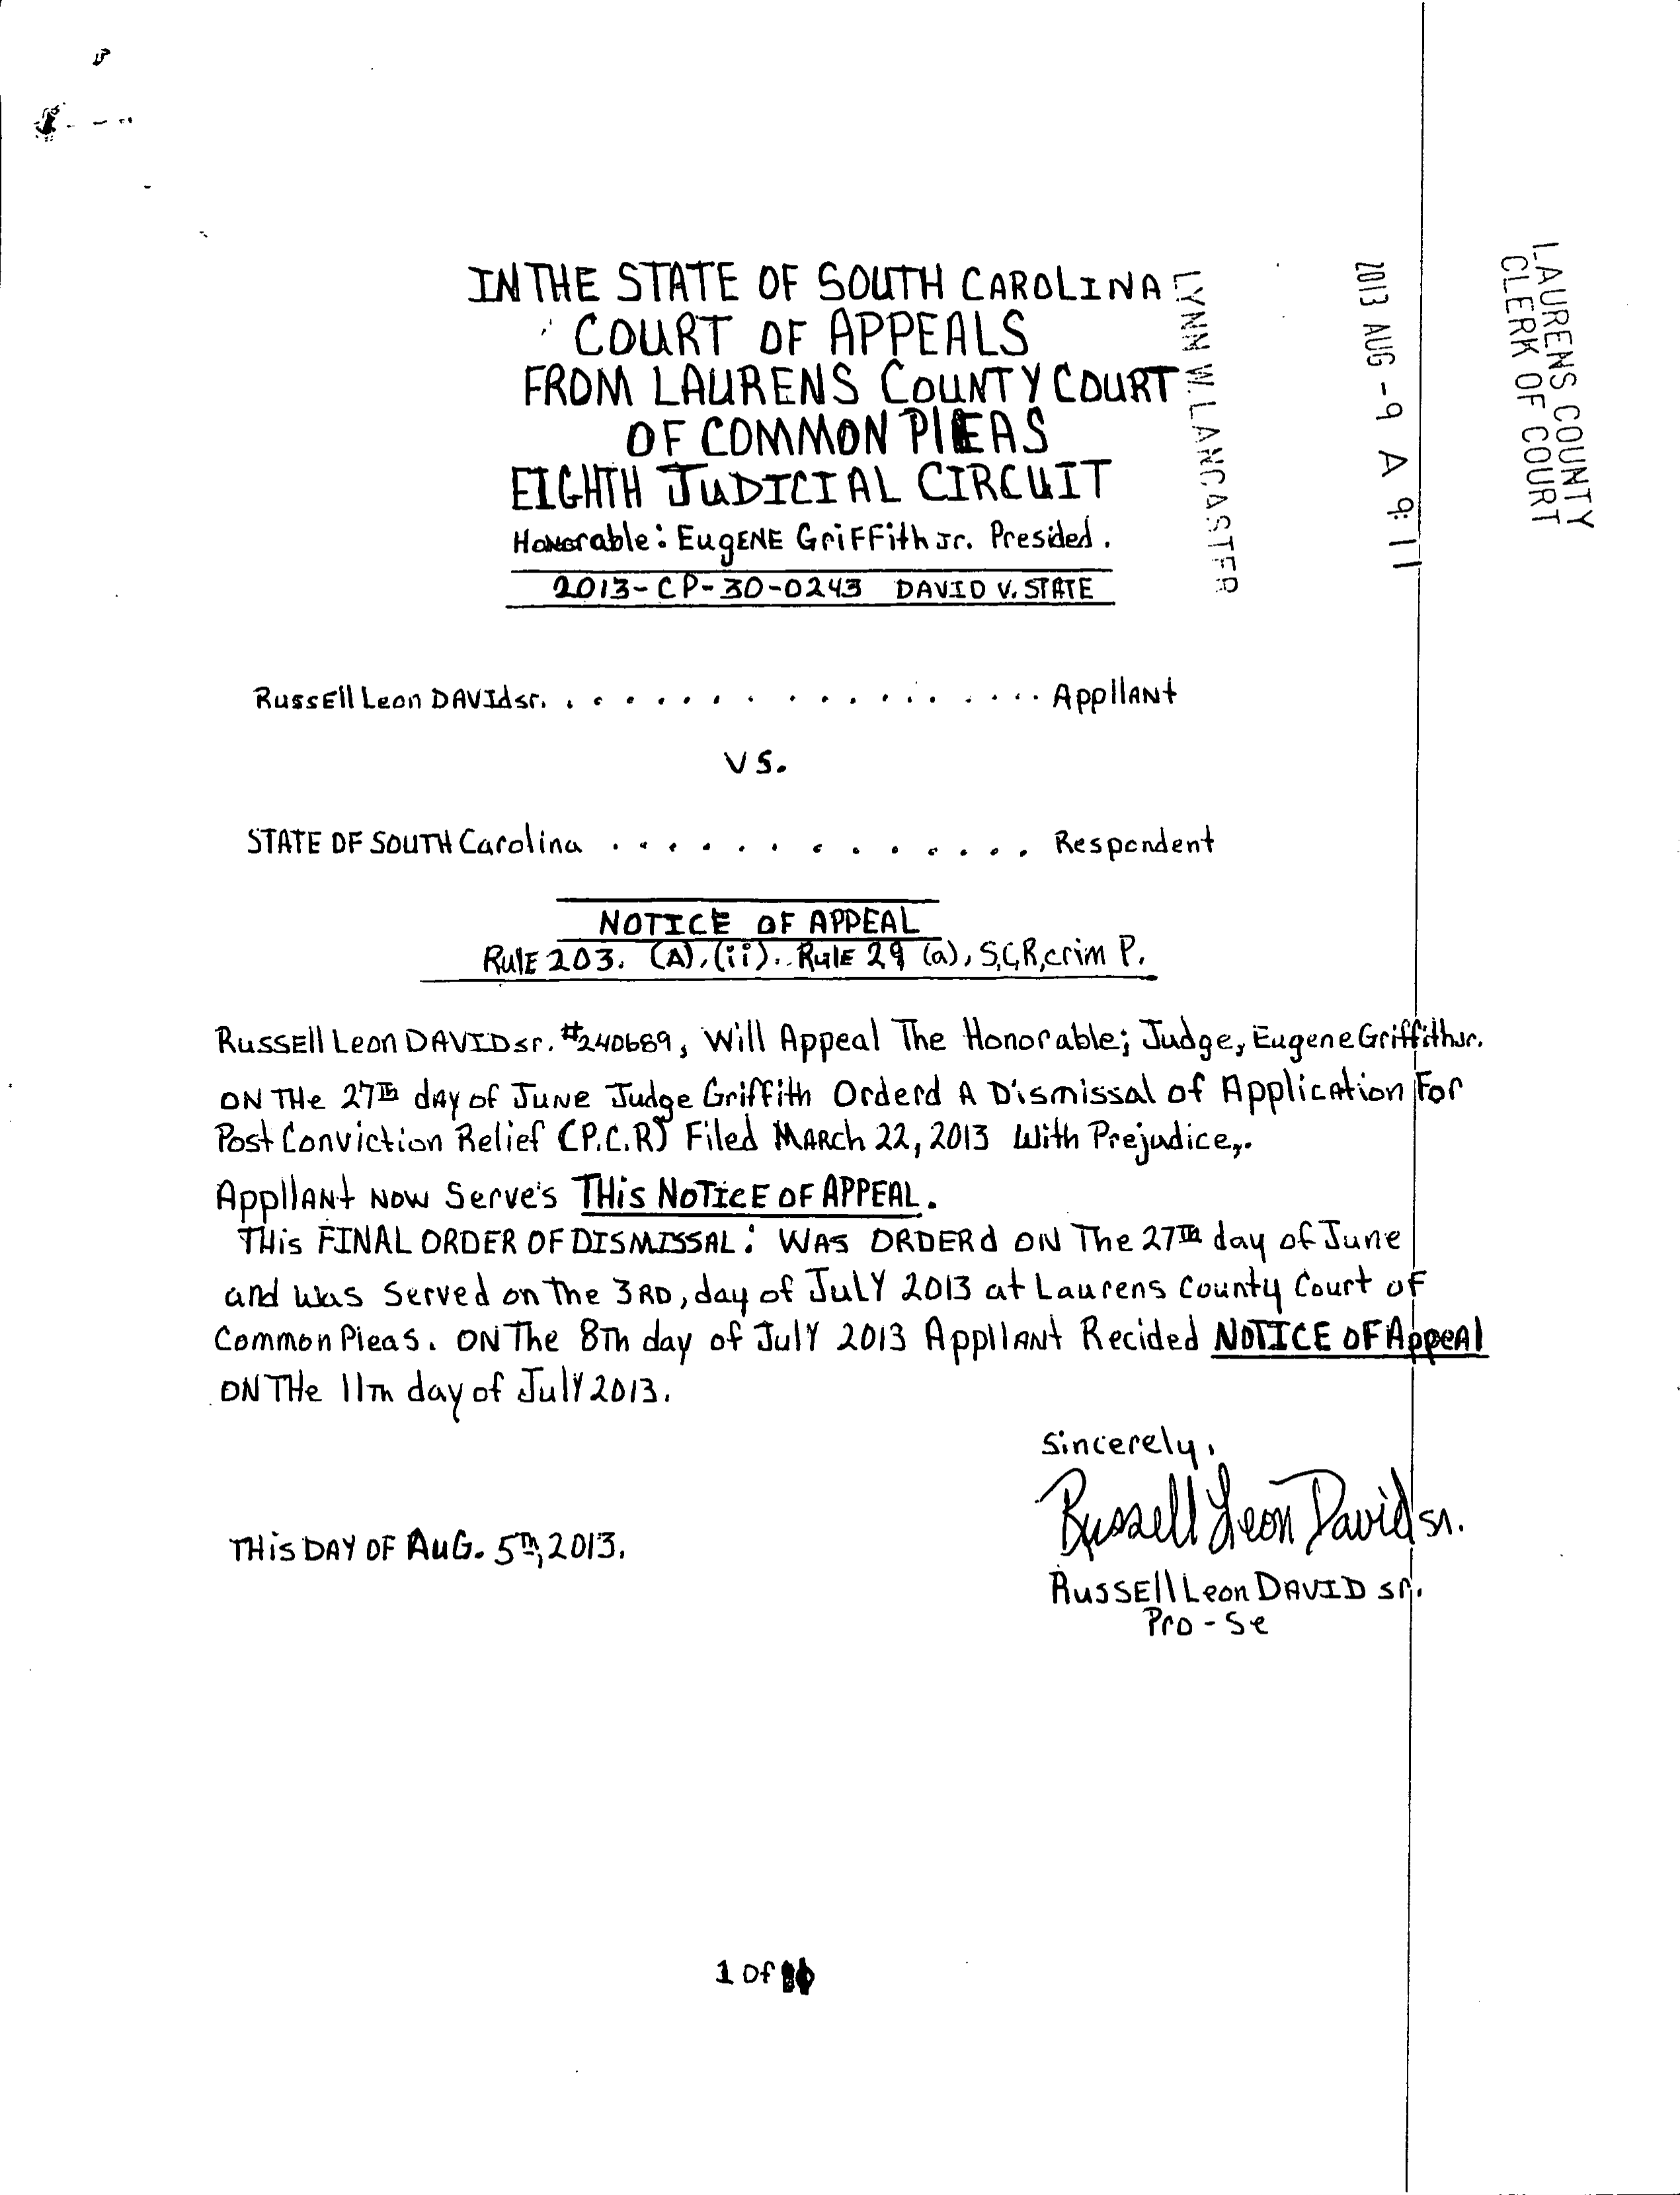 IN THE STATE OF SOUTH CAROLINA
COURT OF APPEALS
FROM LAURENS COUNTY COURT
OF COMMON PLEAS
EIGHTH JUDICIAL CIRCUIT
Honorable: EugENE GriFFith Jr. Presided.
2013-CP-30-0243 DAVID V. STATE
LYNN W. LANCASTER
2013 AUG -9 A 9:11
LAURENS COUNTY
CLERK OF COURT
RussEll Leon DAVIdsr. . . . . . . . . . . . . . . . . . . ApplIANt
VS.
STATE OF SOUTH Carolina . . . . . . . . . . . . . . Respondent
NOTICE OF APPEAL
RulE 203. (A), (ii). RulE 29 (a), S,C,R,crim P.
RussEll Leon DAVIDsr. #240689, Will Appeal The Honorable; Judge, Eugene Griffith Jr.
ON THe 27TH dAy of JuNE Judge Griffith Orderd A Dismissal of Application For
Post Conviction Relief (P.C.R) Filed MARch 22, 2013 With Prejudice,.
ApplIANt NOW Serve's THis NOTICE OF APPEAL.
THis FINAL ORDER OF DISMISSAL: WAS ORDERd ON The 27TH day of June
and was Served on the 3RD, day of JulY 2013 at Laurens County Court of
Common Pleas. ON The 8Th day of JulY 2013 ApplIANt Recided NOTICE OF AppeAl
ON THe 11Th day of JulY 2013.
Sincerely,
Russell Leon David sr.
THis DAY OF AuG. 5Th, 2013.
RussEll Leon DAVID sr.
Pro-Se
1 Of